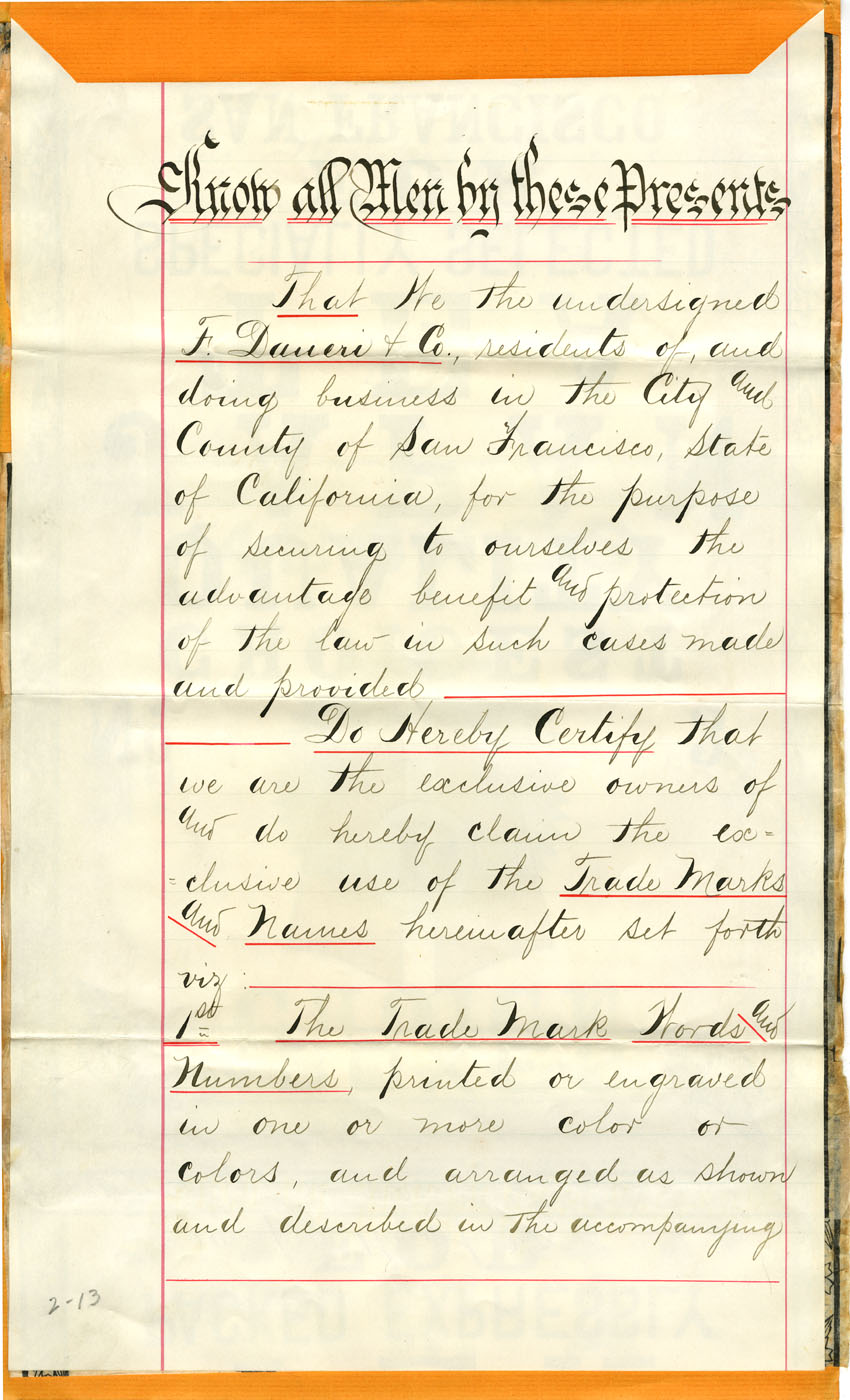 Know all Men by these Presents
That We the undersigned
F. Daneri & Co., residents of, and
doing business in the City and
County of San Francisco, State
of California, for the purpose
of securing to ourselves the
advantage benefit and protection
of the law in such cases made
and provided
Do Hereby Certify that
we are the exclusive owners of
and do hereby claim the ex=
=clusive use of the Trade Marks
and Names hereinafter set forth
viz:
1st The Trade Mark Words and
Numbers, printed or engraved
in one or more color or
colors, and arranged as shown
and described in the accompanying
2-13